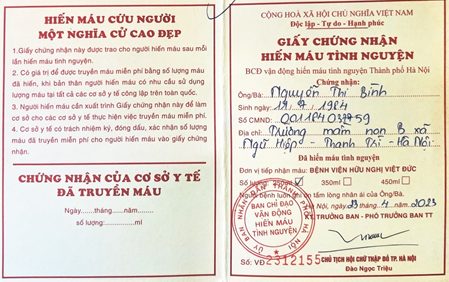 HIẾN MÁU CỨU NGƯỜI
MỘT NGHĨA CỬ CAO ĐẸP
1.Giấy chứng nhận này được trao cho người hiến máu sau mỗi
lần hiến máu tình nguyện.
2. Có giá trị để được truyền máu miễn phí bằng số lượng máu
đã hiến, khi bản thân người hiến máu có nhu cầu sử dụng
lượng máu tại tất cả các cơ sở y tế công lập trên toàn quốc.
3. Người hiến máu cần xuất trình Giấy chứng nhận này để làm
cơ sở cho các cơ sở y tế thực hiện việc truyền máu miễn phí.
4. Cơ sở y tế có trách nhiệm ký, đóng dấu, xác nhận số lượng
máu đã truyền miễn phí cho người hiến máu vào giấy chứng
nhận.
CHỨNG NHẬN CỦA CƠ SỞ Y TẾ
ĐÃ TRUYỀN MÁU
Ngày......tháng......năm.........
số lượng:.................ml
CỘNG HOÀ XÃ HỘI CHỦ NGHĨA VIỆT NAM
Độc lập - Tự do - Hạnh phúc
GIẤY CHỨNG NHẬN
HIẾN MÁU TÌNH NGUYỆN
BCĐ vận động hiến máu tình nguyện Thành phố Hà Nội
Chứng nhận:
Ông/Bà: Nguyễn Thị Bình
Sinh ngày: 1984
Số CMND:
Địa chỉ: Trường mầm non B xã
Ngũ Hiệp - Thanh Trì - Hà Nội
Đã hiến máu tình nguyện
Đơn vị tiếp nhận máu: BỆNH VIỆN HỮU NGHỊ VIỆT ĐỨC
Số lượng: 250ml 350ml 450ml
Người bệnh luôn ghi ơn tấm lòng nhân ái của Ông/Bà.
Hà Nội, ngày 23 tháng 4 năm 2023
KT.TRƯỞNG BAN - PHÓ TRƯỞNG BAN TT
ỦY BAN NHÂN DÂN THÀNH PHỐ HÀ NỘI
BAN CHỈ ĐẠO
VẬN ĐỘNG
HIẾN MÁU
TÌNH NGUYỆN
Số: VĐ 2312155
CHỦ TỊCH HỘI CHỮ THẬP ĐỎ TP. HÀ NỘI
Đào Ngọc Triệu